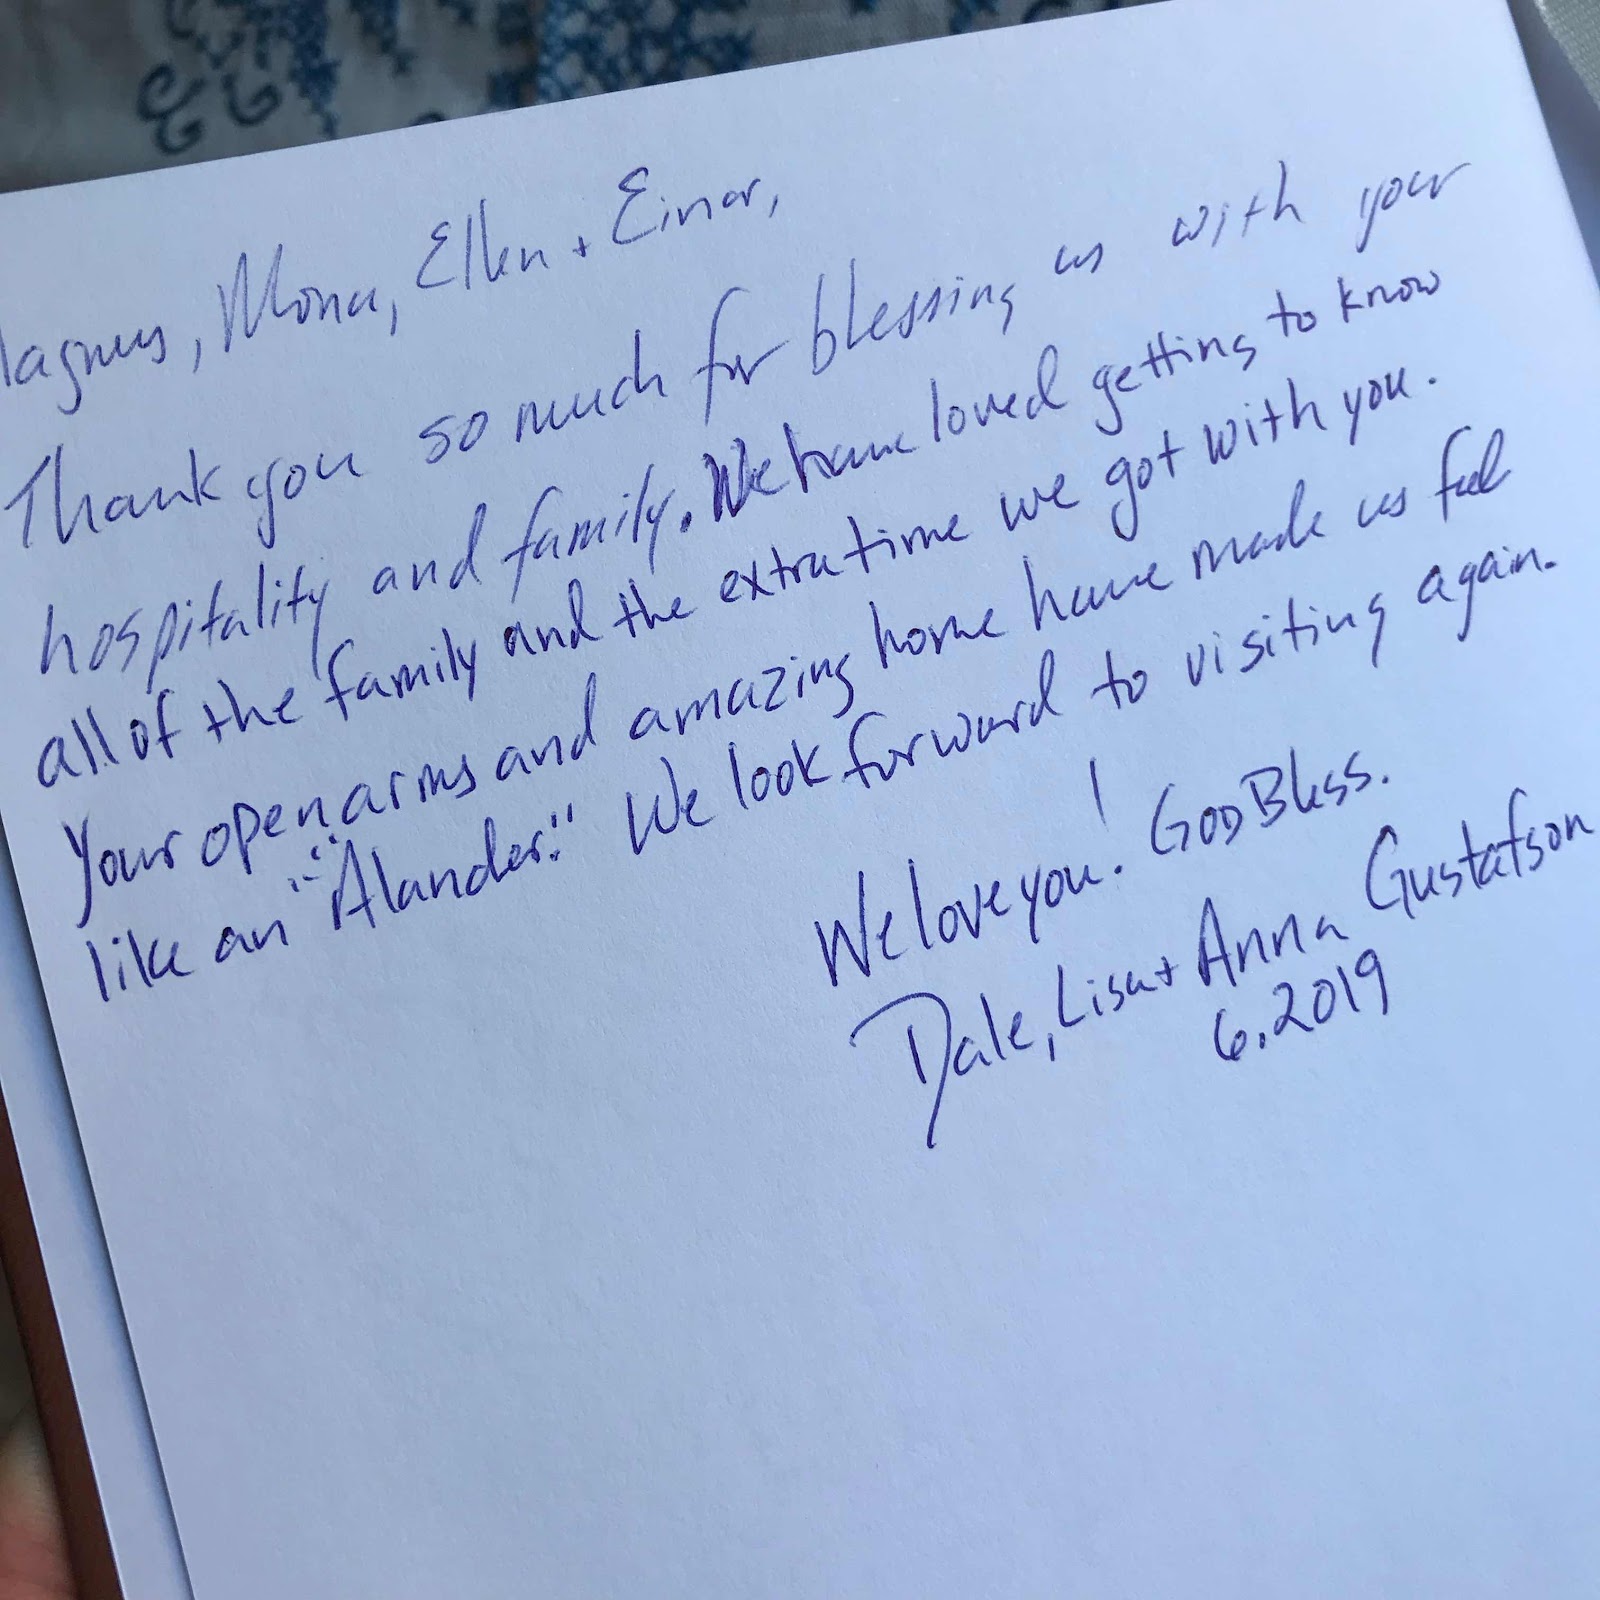 lagnus, Mona, Ellen + Einar,
Thank you so much for blessing us with your
hospitality and family. We have loved getting to know
all of the family and the extra time we got with you.
Your open arms and amazing home have made us feel
like an "Älander." We look forward to visiting again.
We love you! God Bless.
Dale, Lisa + Anna Gustafson
6.2019